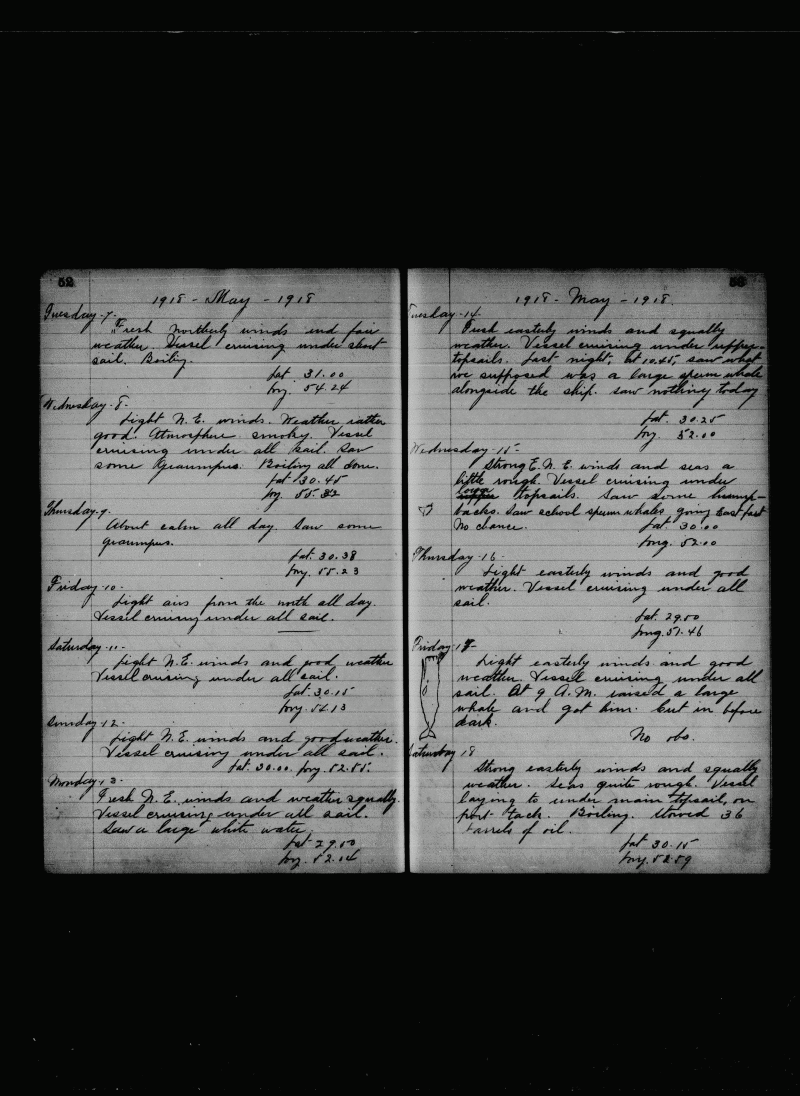 52
1918 - May - 1918
Tuesday - 7 -
Fresh Northerly winds and fair
weather. Vessel cruising under short
sail. Boiling.
Lat 31.00
Long. 54.24
Wednesday - 8 -
Light N.E. winds. Weather rather
good. Atmosphere smoky. Vessel
cruising under all sail. Saw
some Grampus. Boiling all done.
Lat 30.45
Long 55.32
Thursday - 9 -
About calm all day. Saw some
grampus.
Lat. 30.38
Long. 55.23
Friday - 10 -
Light airs from the north all day.
Vessel cruising under all sail.
Saturday - 11 -
Light N.E. winds and good weather
Vessel cruising under all sail.
Lat. 30.15
Long. 54.13
Sunday - 12 -
Light N.E. winds and good weather.
Vessel cruising under all sail.
Lat. 30.00. Long. 52.55.
Monday - 13 -
Fresh N.E. winds and weather squally.
Vessel cruising under all sail.
Saw a large white water.
Lat 29.50
Long. 52.14
53
1918 - May - 1918.
Tuesday - 14 -
Fresh easterly winds and squally
weather. Vessel cruising under upper-
topsails. Last night, at 10.45, saw what
we supposed was a large sperm whale
alongside the ship. Saw nothing today
Lat. 30.25
Long. 52.00
Wednesday - 15 -
Strong E.N.E. winds and seas a
little rough. Vessel cruising under
lower
upper topsails. Saw some hump-
backs. Saw school sperm whales, going East fast
No chance. Lat 30.00
Long. 52.00
Thursday - 16 -
Light easterly winds and good
weather. Vessel cruising under all
sail.
Lat. 29.50
Long. 51.46
Friday - 17 -
Light easterly winds and good
weather. Vessel cruising under all
sail. At 9 A.M. raised a large
whale and got him. Cut in before
dark.
No obs.
Saturday 18
Strong easterly winds and squally
weather. Seas quite rough. Vessel
laying to under main topsail, on
port tack. Boiling. Stowed 36
barrels of oil.
Lat 30.15
Long. 52.59